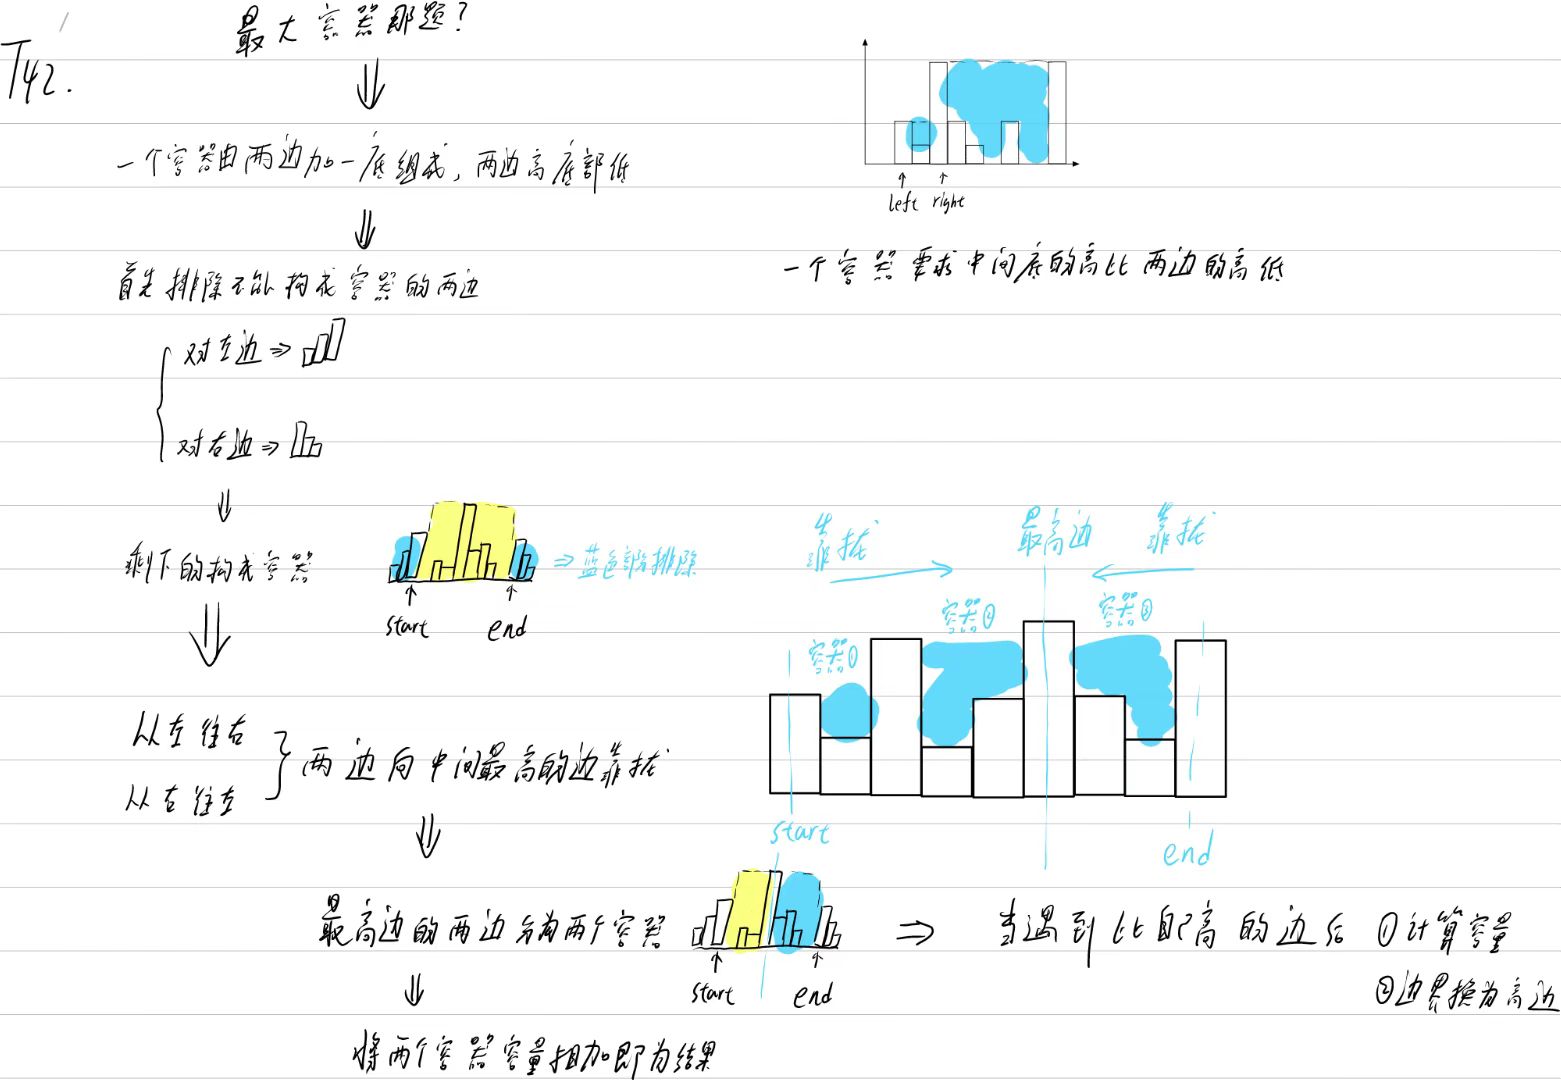 T42.
最大容器那题?
一个容器由两边加一底组成, 两边高底部低
left right
一个容器要求中间底的高比两边的高低
首先排除不能构成容器的两边
对左边⇒
对右边⇒
剩下的构成容器
⇒蓝色部分排除
start end
靠拢 最高边 靠拢
容器① 容器② 容器③
start
end
从左往右
从右往左
两边向中间最高的边靠拢
最高边的两边分为两个容器
start end
⇒ 当遇到比自己高的边后 ①计算容量
②边界换为高边
将两个容器容量相加即为结果